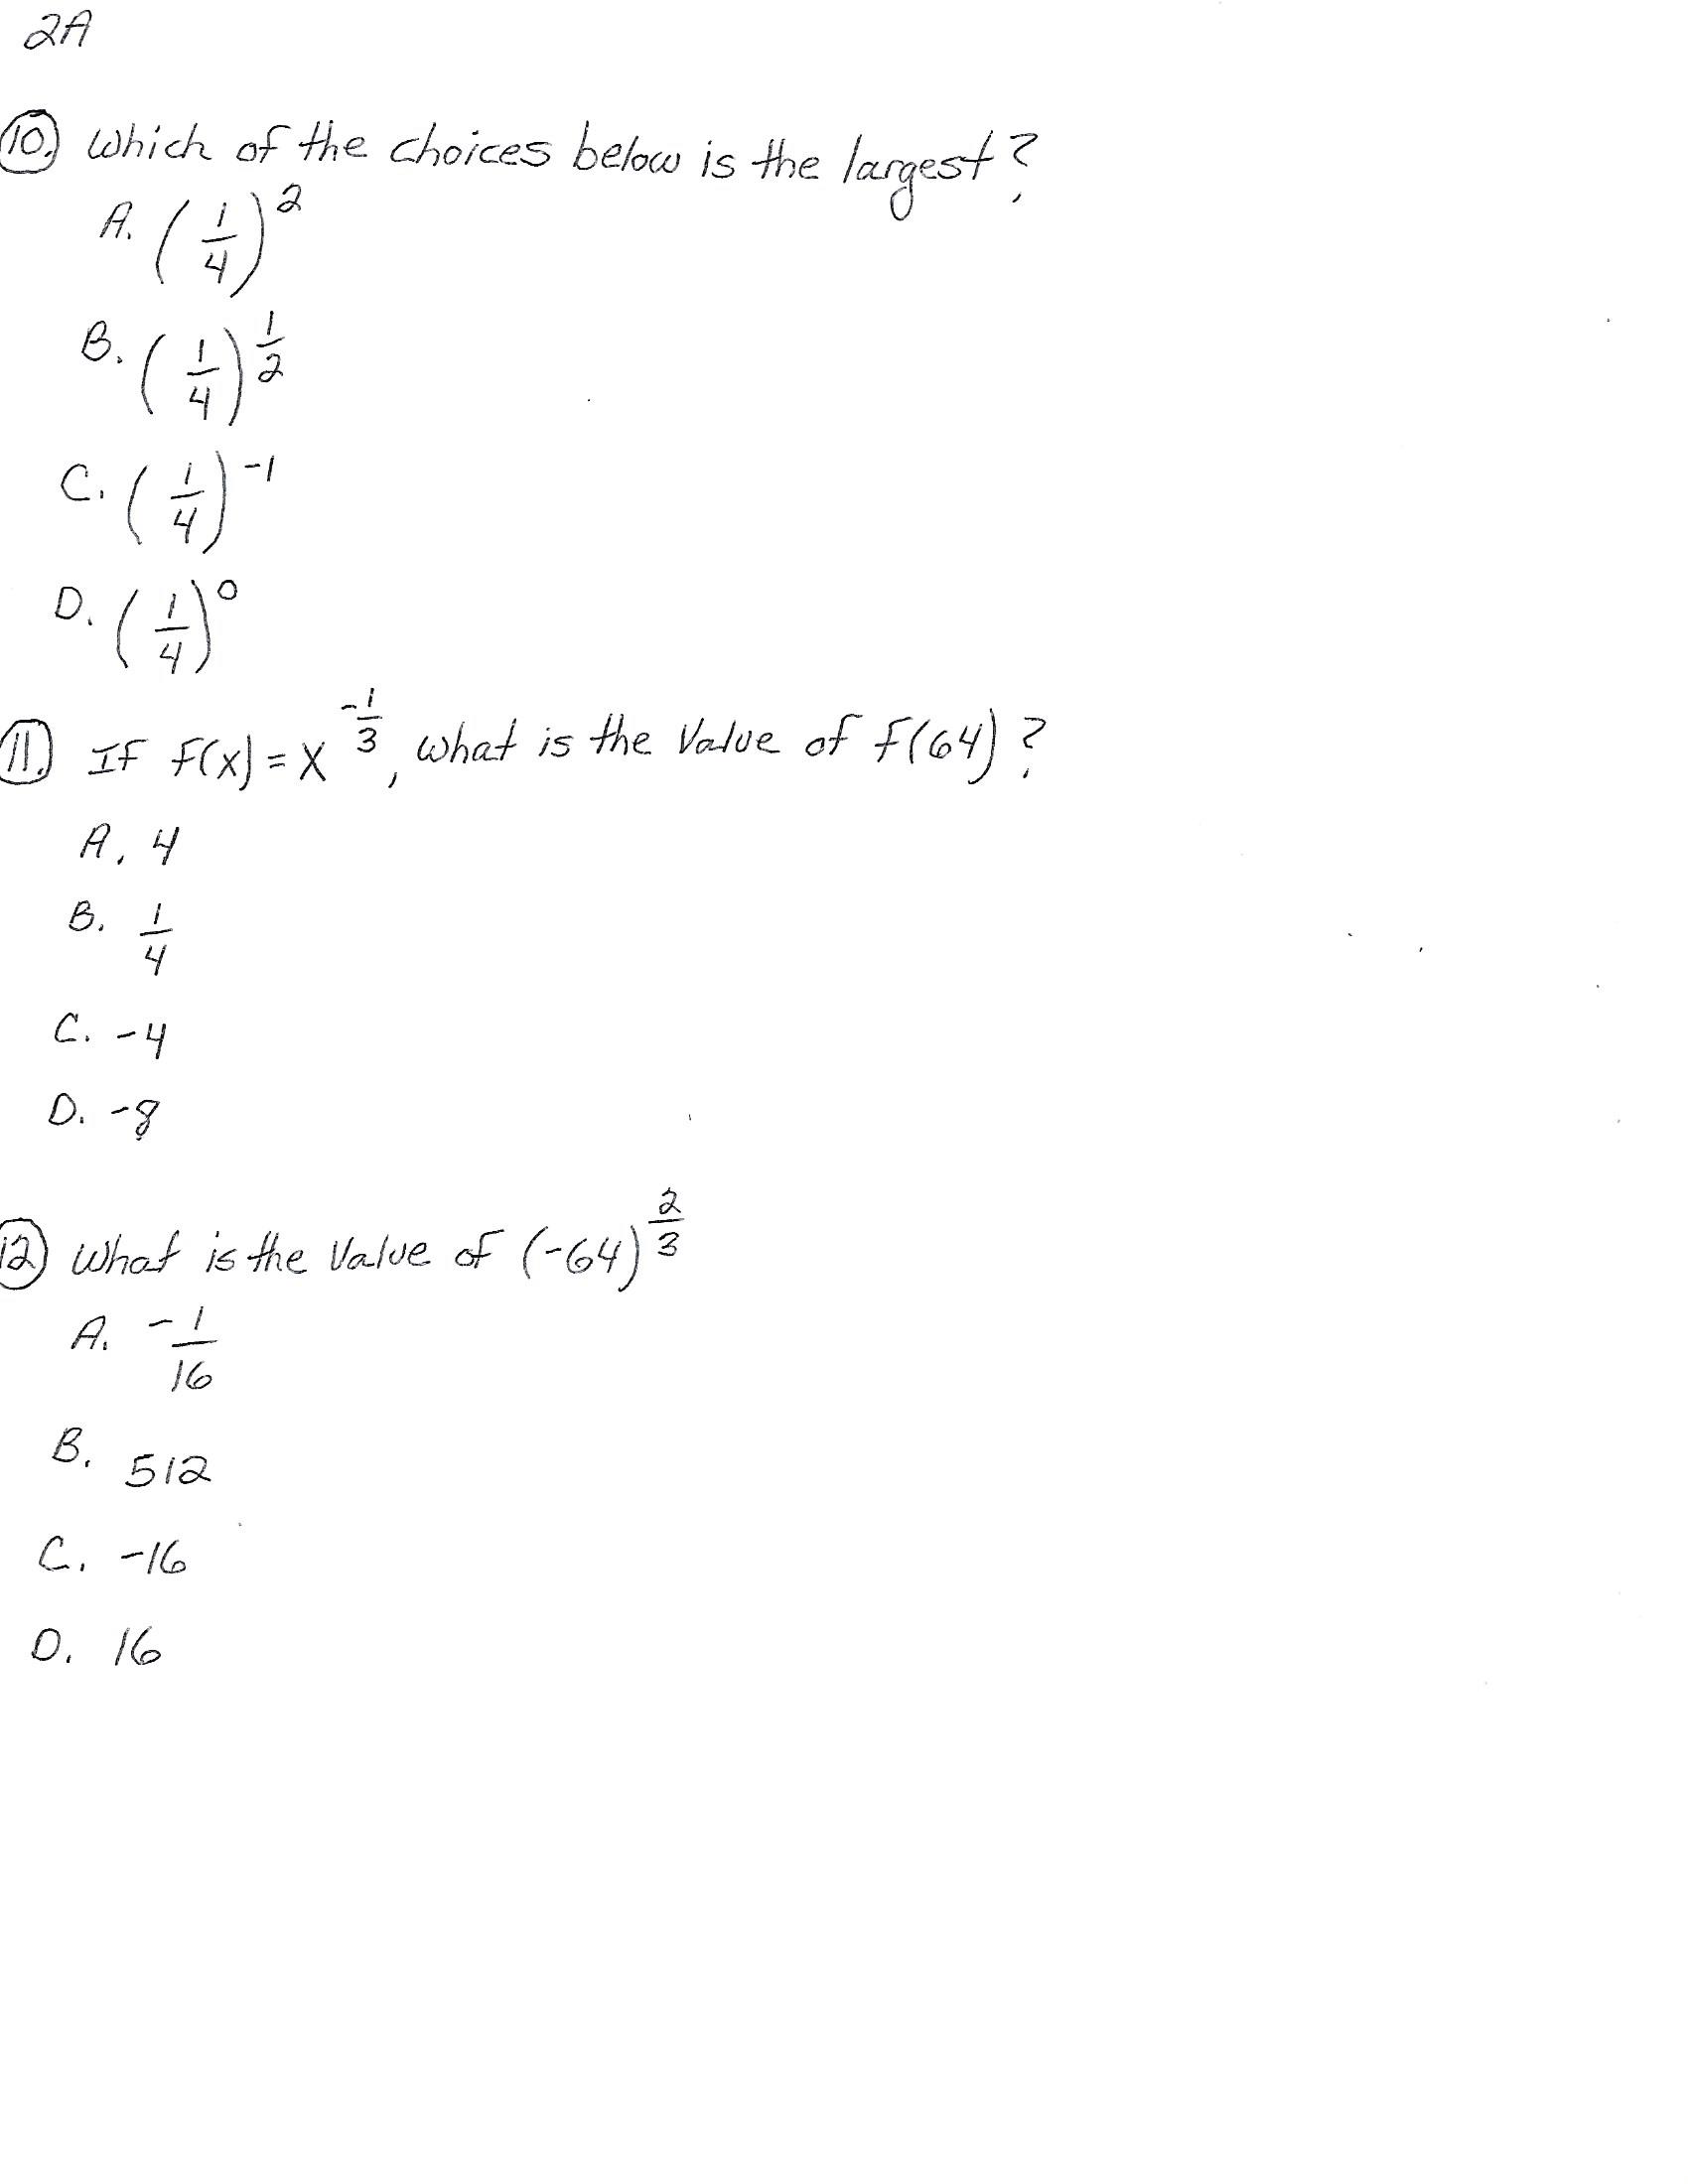 2A
10. Which of the choices below is the largest?
A. (1/4)^2
B. (1/4)^(1/2)
C. (1/4)^-1
D. (1/4)^0
11. If f(x) = x^(-1/3), what is the value of f(64)?
A. 4
B. 1/4
C. -4
D. -8
12 What is the value of (-64)^(2/3)
A. -1/16
B. 512
C. -16
D. 16